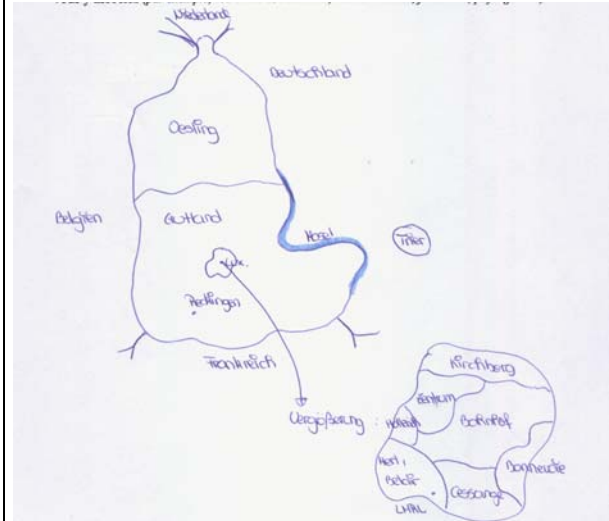 Niederlande
Deutschland
Oesling
Belgien
Gutland
Mosel
Trier
Lux.
Reckingen
Frankreich
Vergößerung :
Kirchberg
Zentrum
Hollerich
Bahnhof
Merl,
Belair
Bonnevoie
Cessange
LMRL